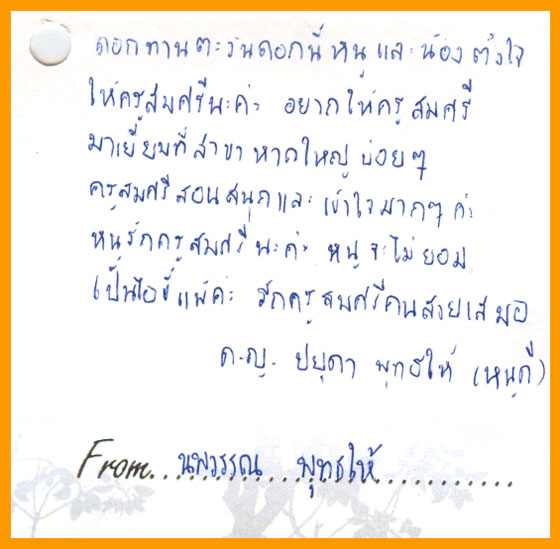 ดอกทานตะวันดอกนี้หนูและน้องตั้งใจ
ให้ครูสมศรีนะค่ะ อยากให้ครูสมศรี
มาเยี่ยมที่สาขาหาดใหญ่บ่อยๆ
ครูสมศรีสอนสนุกและเข้าใจมากๆ ค่ะ
หนูรักครูสมศรีนะค่ะ หนูจะไม่ยอม
เป็นไอขี้แพ้ค่ะ รักครูสมศรีคนสวยเสมอ
ด.ญ. ปยุดา พุทธให้ (หนูดี)
From นพวรรณ พุทธให้